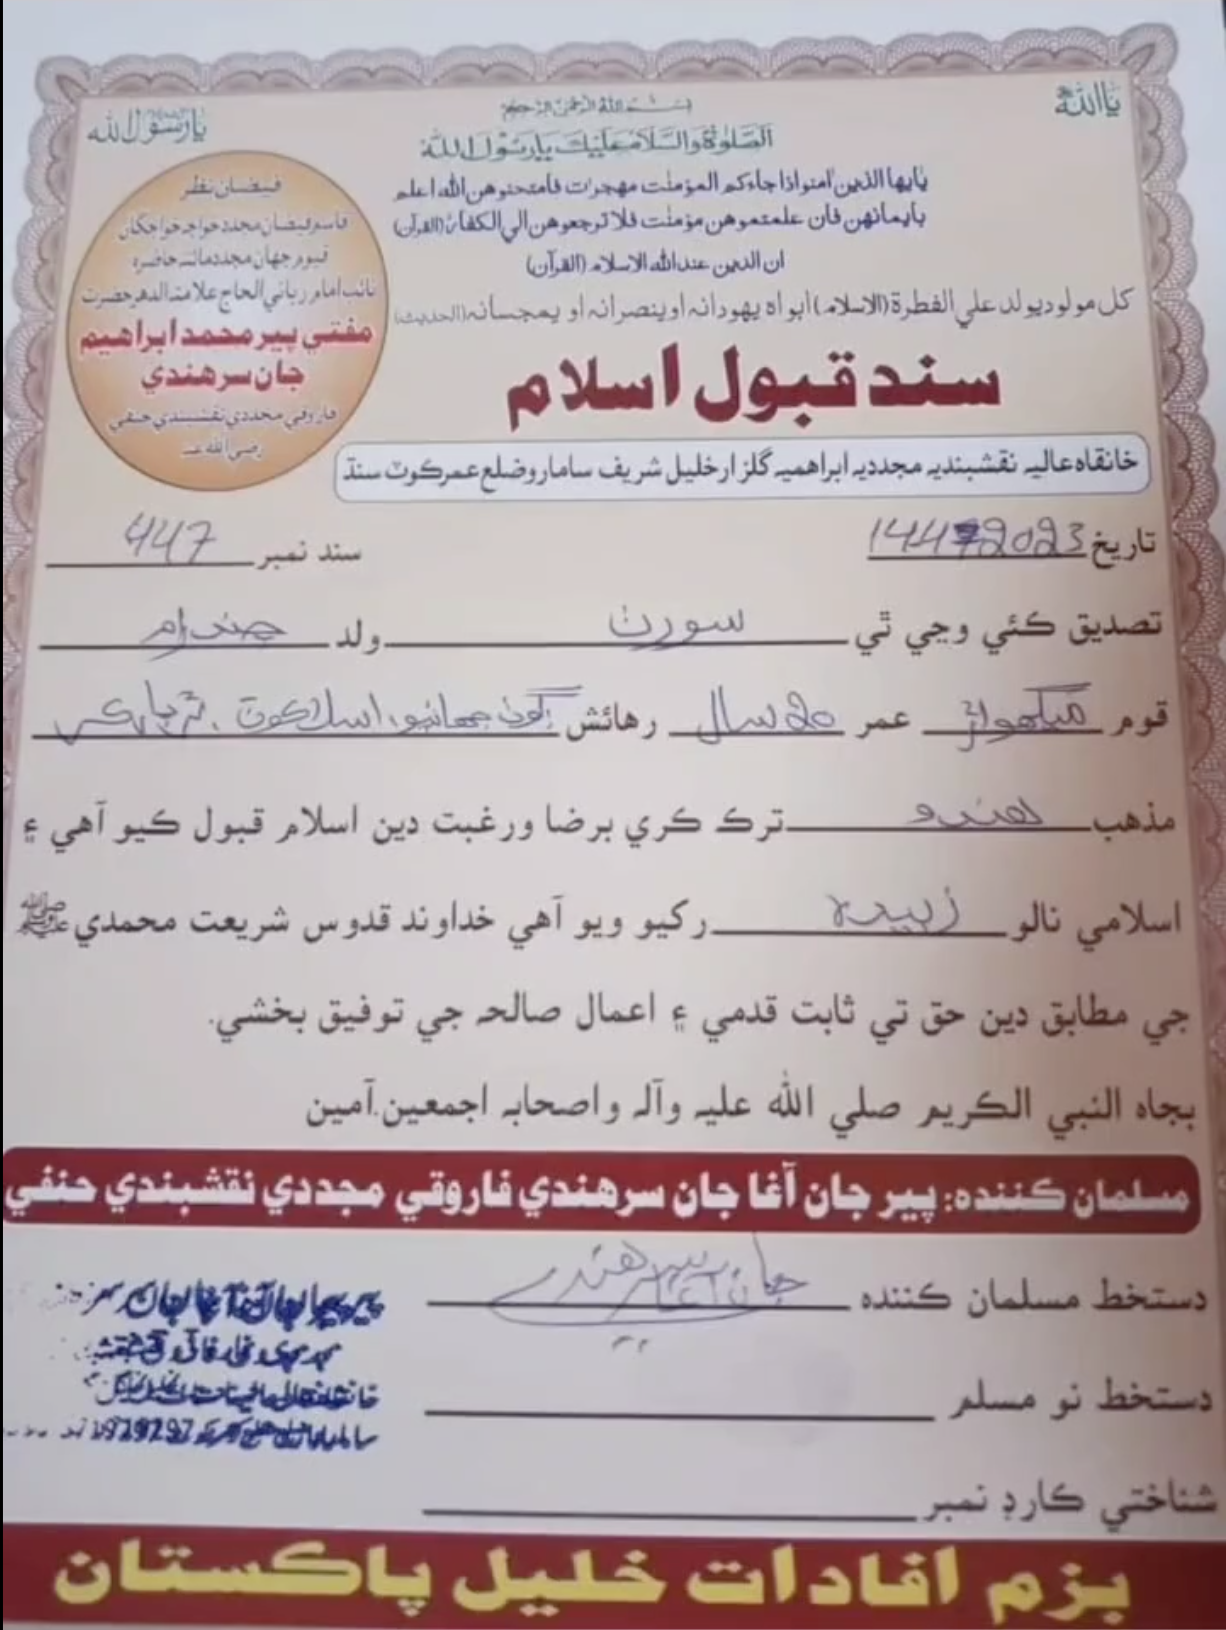 يا الله
بسم الله الرحمن الرحيم
يا رسول الله
الصلوٰة والسلام عليك يا رسول الله
يايها الذين امنوا اذا جاءكم المؤمنٰت مهجرات فامتحنوهن الله اعلم
بايمانهن فان علمتموهن مؤمنٰت فلا ترجعوهن الي الكفار (القرآن)
ان الدين عندالله الاسلام (القرآن)
كل مولود يولد علي الفطرة (الاسلام) ابواه يهودانہ او ينصرانہ او يمجسانہ (الحديث)
فيضان نظر
قاسم فيضان مجدد خواجہ خواجگان
قيوم جهان مجدد مائتہ حاضره
نائب امام رباني الحاج علامتہ الدهر حضرت
مفتي پير محمد ابراهيم
جان سرهندي
فاروقي مجددي نقشبندي حنفي
رضي الله عنہ
سند قبول اسلام
خانقاه عاليہ نقشبنديہ مجدديہ ابراهميہ گلزار خليل شريف سامارو ضلع عمرڪوٽ سنڌ
تاريخ 2023
سند نمبر 447
تصديق ڪئي وڃي ٿي سورٺ ولد چندرام
قوم ميگهواڙ عمر 20 سال رهائش ڳوٺ اسلام ڪوٽ، ٿرپارڪر
مذهب هندو ترڪ ڪري برضا ورغبت دين اسلام قبول ڪيو آهي ۽
اسلامي نالو زبيده رکيو ويو آهي خداوند قدوس شريعت محمدي ﷺ
جي مطابق دين حق تي ثابت قدمي ۽ اعمال صالحہ جي توفيق بخشي.
بجاه النبي الڪريم صلي الله عليہ وآلہ واصحابہ اجمعين.آمين
مسلمان ڪننده: پير جان آغا جان سرهندي فاروقي مجددي نقشبندي حنفي
دستخط مسلمان ڪننده جان آغا سرهندي
دستخط نو مسلم
شناختي ڪارڊ نمبر
بزم افادات خليل پاڪستان